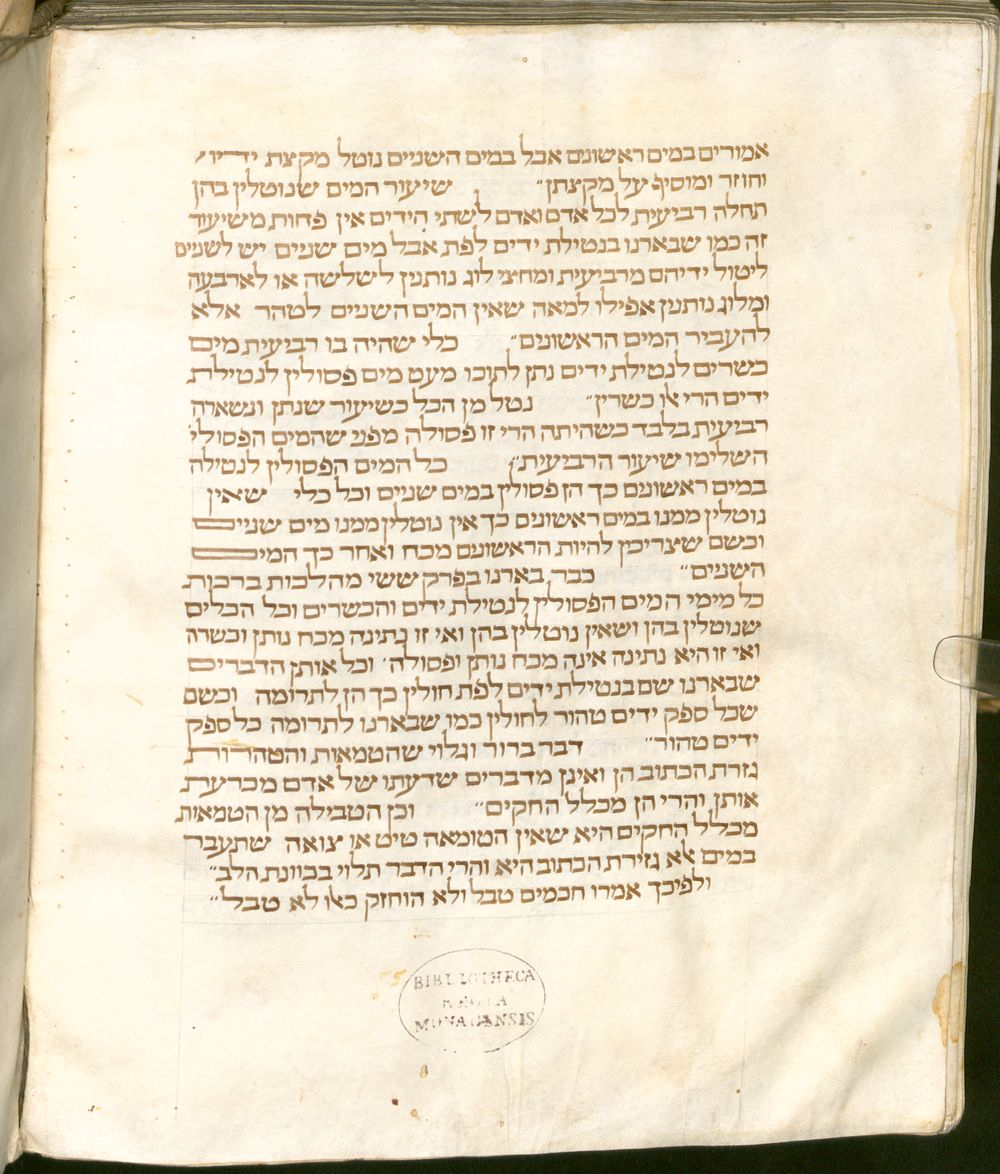 אמורים במים ראשונים אבל במים השניים נוטל מקצת ידיו
וחוזר ומוסיף על מקצתן״ שיעור המים שנוטלין בהן
תחלה רביעית לכל אדם ואדם לשתי הידים אין פחות משיעור
זה כמו שבארנו בנטילת ידים לפת אבל מים שנים יש לשנים
ליטול ידיהם מרביעית ומחצי לוג נותנין לשלשה או לארבעה
ומלוג נותנין אפילו למאה שאין המים השנים לטהר אלא
להעביר המים הראשונים״ כלי שהיה בו רביעית מים
כשרים לנטילת ידים נתן לתוכו מעט מים פסולין לנטילת
ידים הרי אלו כשרין״ נטל מן הכל כשיעור שנתן ונשארה
רביעית בלבד כשהיתה הרי זו פסולה מפני שהמים הפסולי׳
השלימו שיעור הרביעית״ כל המים הפסולין לנטילה
במים ראשונים כך הן פסולין במים שנים וכל כלי שאין
נוטלין ממנו במים ראשונים כך אין נוטלין ממנו מים שניים
וכשם שצריכין להיות הראשונים מכח ואחר כך המים
השנים״ כבר בארנו בפרק ששי מהלכות ברכות
כל מימי המים הפסולין לנטילת ידים והכשרים וכל הכלים
שנוטלין בהן ושאין נוטלין בהן ואי זו נתינה מכח נותן וכשרה
ואי זו היא נתינה אינה מכח נותן ופסולה׳ וכל אותן הדברים
שבארנו שם בנטילת ידים לפת חולין כך הן לתרומה וכשם
שכל ספק ידים טהור לחולין כמו שבארנו לתרומה כל ספק
ידים טהור״ דבר ברור וגלוי שהטמאות והטהרות
גזרת הכתוב הן ואינן מדברים שדעתו של אדם מכרעת
אותן והרי הן מכלל החקים״ וכן הטבילה מן הטמאות
מכלל החקים היא שאין הטומאה טיט או צואה שתעבר
במים אלא גזירת הכתוב היא והרי הדבר תלוי בכוונת הלב״
ולפיכך אמרו חכמים טבל ולא הוחזק כאלו לא טבל״
BIBLIOTHECA
REGIA
MONACENSIS